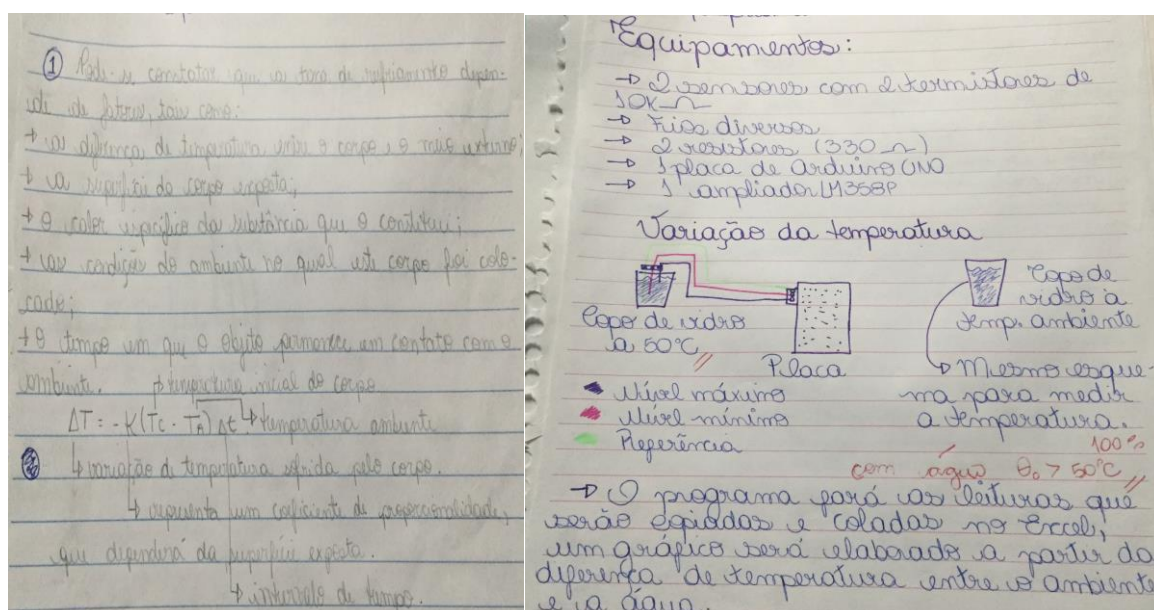 ① Pode-se constatar que a taxa de resfriamento depen-
de de fatores, tais como:
→ a diferença de temperatura entre o corpo e o meio externo;
→ a superfície do corpo exposta;
→ o calor específico da substância que o constitui;
→ as condições do ambiente no qual este corpo foi colo-
cado;
→ O tempo em que o objeto permanece em contato com o
ambiente.
→ temperatura inicial do corpo
ΔT = -K(Tc - TA) Δt
→ temperatura ambiente
↳ variação de temperatura sofrida pelo corpo.
↳ representa um coeficiente de proporcionalidade,
que dependerá da superfície exposta.
↳ intervalo de tempo.
Equipamentos:
→ 2 sensores com 2 termistores de
10K Ω
→ Fios diversos
→ 2 resistores (330 Ω)
→ 1 placa de Arduino UNO
→ 1 ampliador LM358P
Variação da temperatura
Copo de vidro
a 50°C
Placa
Copo de
vidro à
temp. ambiente
→ Mesmo esque-
ma para medir
a temperatura.
Nível máximo
Nível mínimo
Referência
100%
com água θ₀ > 50°C
→ O programa fará as leituras que
serão copiadas e coladas no Excel,
um gráfico será elaborado a partir da
diferença de temperatura entre o ambiente
e a água.